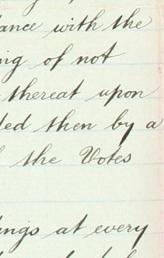 ance with the
ing of not
thereat upon
ded then by a
the Votes
ings at every